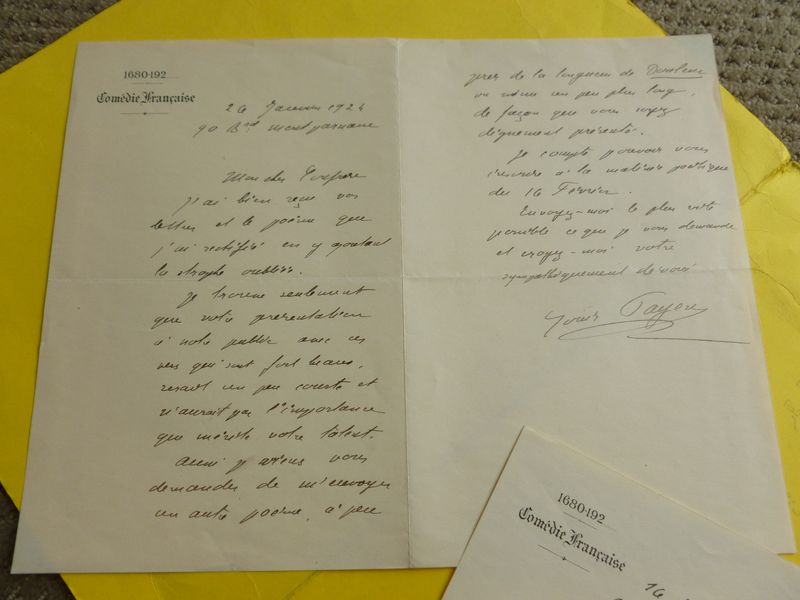 1680-192
Comédie Française
26 Janvier 1924
90 Bd Montparnasse
Mon cher Confrère
J'ai bien reçu vos
lettres et le poème que
j'ai rectifié en y ajoutant
la strophe oubliée.
Je trouve seulement
que votre présentation
à notre public avec ces
vers qui sont fort beaux,
serait un peu courte et
n'aurait pas l'importance
que mérite votre talent.
Aussi je viens vous
demander de m'envoyer
un autre poème, à peu
près de la longueur de
ou même un peu plus long,
de façon que vous soyez
dignement présenté.
Je compte pouvoir vous
inscrire à la matinée poétique
du 16 Février.
Envoyez-moi le plus vite
possible ce que je vous demande
et croyez-moi votre
sympathiquement dévoué
Louis Payen
1680-192
Comédie Française
16